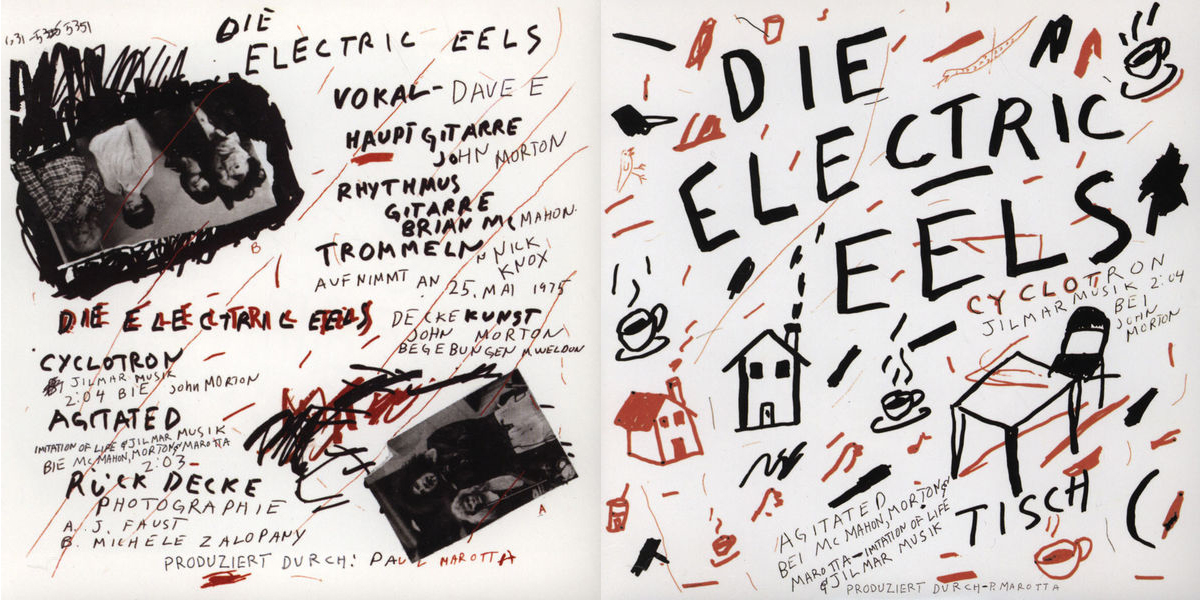 DIE
ELECTRIC EELS
VOKAL- DAVE E
HAUPT GITARRE
JOHN MORTON
RHYTHMUS
GITARRE
BRIAN MCMAHON.
TROMMELN NICK
KNOX
AUFNIMMT AN 25. MAI 1975
B
DIE ELECTRIC EELS
DECKE KUNST
JOHN MORTON
BEGEBUNGEN M. WELDON
CYCLOTRON
JILMAR MUSIK
2:04 BIE JOHN MORTON
AGITATED
IMITATION OF LIFE & JILMAR MUSIK
BIE MCMAHON, MORTON & MAROTTA
2:03
RÜCK DECKE
PHOTOGRAPHIE
A. J. FAUST
B. MICHELE ZALOPANY
A
PRODUZIERT DURCH: PAUL MAROTTA
DIE
ELECTRIC
EELS
CYCLOTRON
JILMAR MUSIK 2:04
BEI
JOHN
MORTON
TISCH
AGITATED
BEI MCMAHON, MORTON &
MAROTTA-IMITATION OF LIFE
& JILMAR MUSIK
PRODUZIERT DURCH-P. MAROTTA